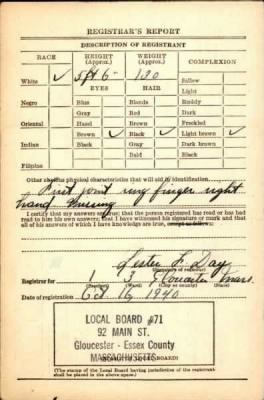 REGISTRAR'S REPORT
DESCRIPTION OF REGISTRANT
RACE HEIGHT (Approx.) WEIGHT (Approx.) COMPLEXION
White ✓ 5 ft 6 130 Sallow
EYES HAIR Light
Negro Blue Blonde Ruddy
Gray Red Dark
Oriental Hazel Brown Freckled
Brown ✓ Black ✓ Light brown ✓
Indian Black Gray Dark brown
Bald Black
Filipino
Other obvious physical characteristics that will aid in identification
First joint ring finger right
hand missing
I certify that my answers are true; that the person registered has read or has had
read to him his own answers; that I have witnessed his signature or mark and that
all of his answers of which I have knowledge are true, except as follows:
Lester F. Day
(Signature of registrar)
Registrar for 1 3 Gloucester Mass
(Precinct) (Ward) (City or county) (State)
Date of registration Oct 16 1940
LOCAL BOARD #71
92 MAIN ST.
Gloucester - Essex County
MASSACHUSETTS
(The stamp of the Local Board having jurisdiction of the registrant
shall be placed in the above space.)